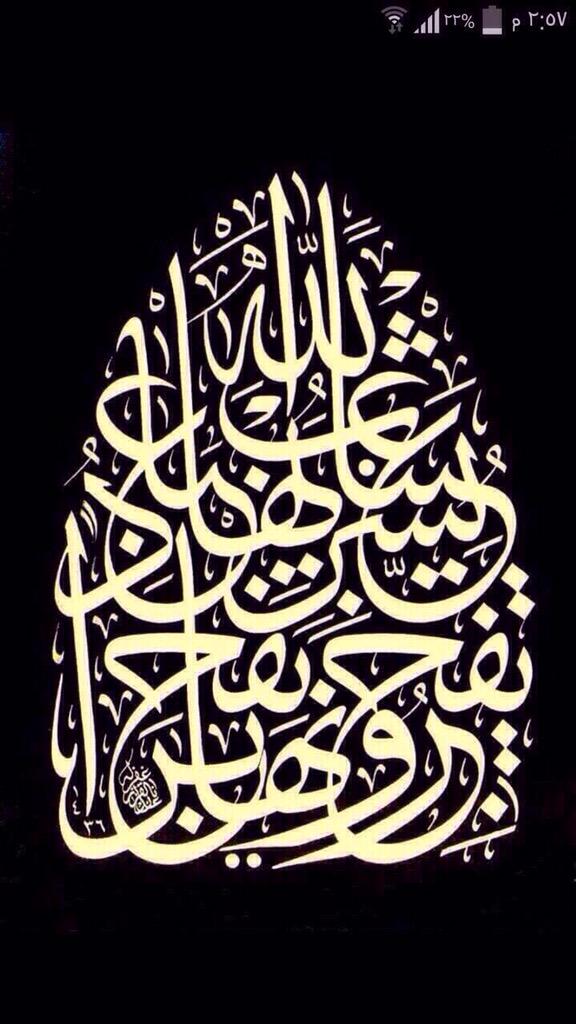 ٢:٥٧ م ٢٢%
عينا يشرب بها عباد الله
يفجرونها تفجيرا